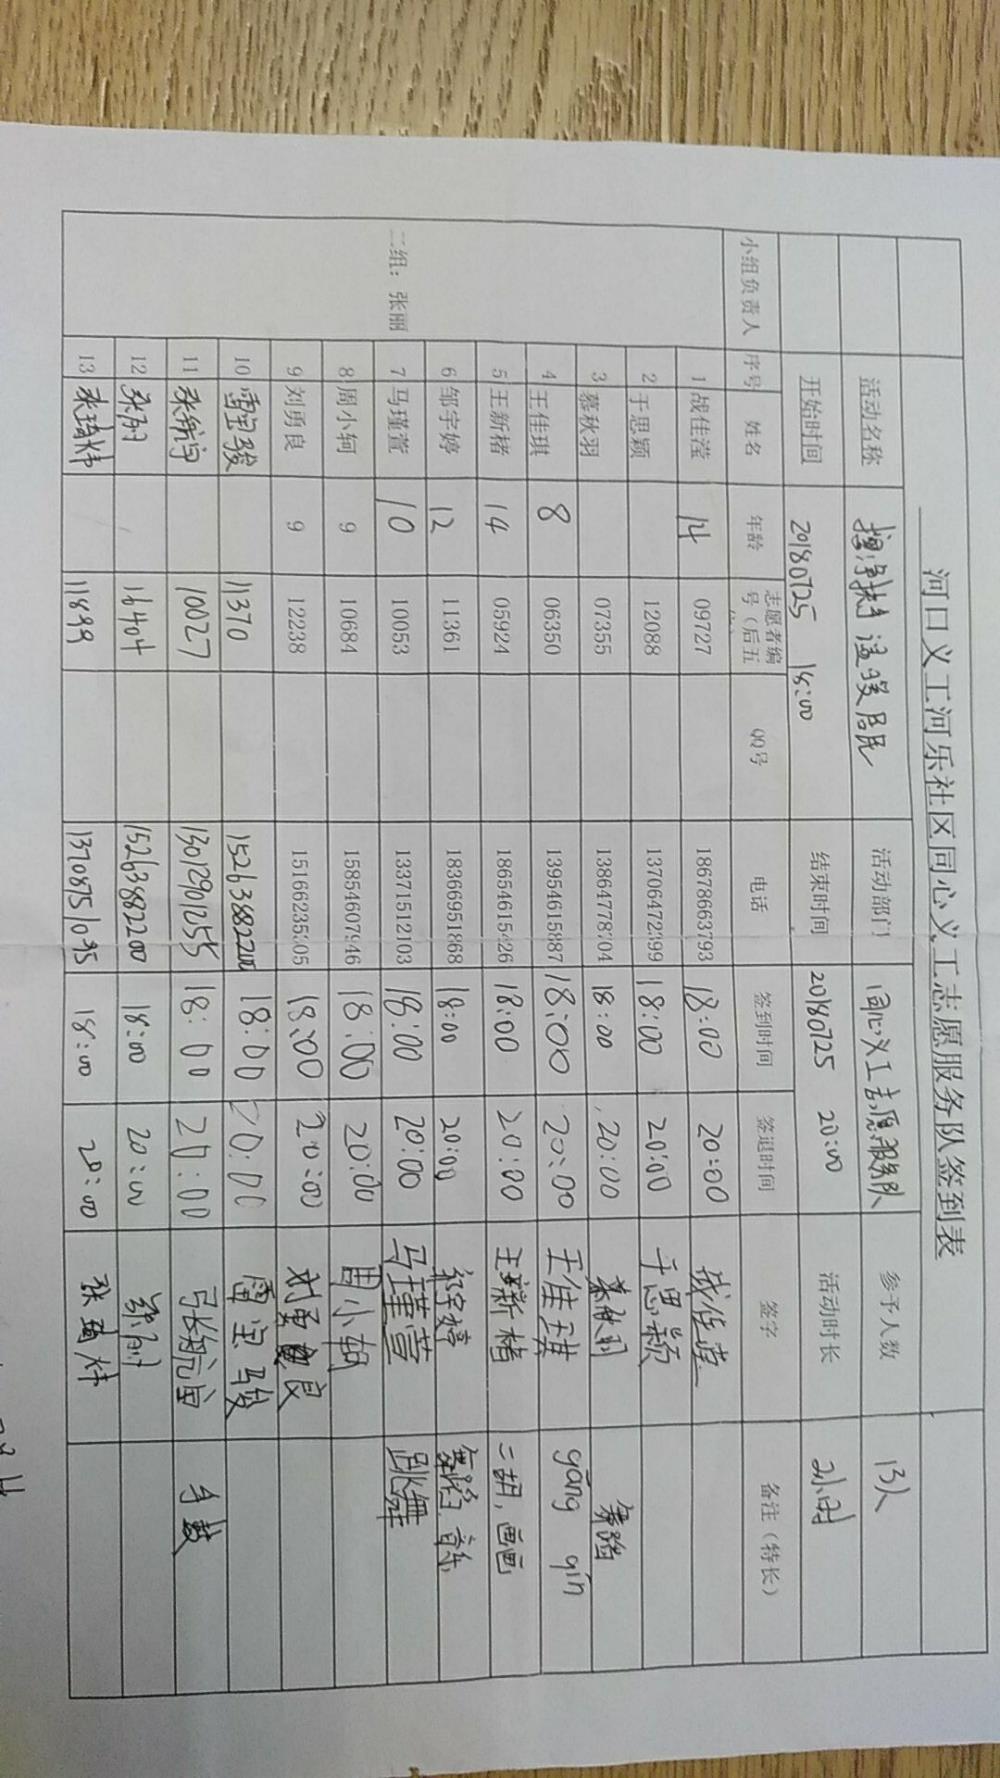 河口义工河乐社区同心义工志愿服务队签到表
活动名称 活动部门 同心义工志愿服务队 参予人数 13人
开始时间 20180725 18:00 结束时间 20180725 20:00 活动时长 2小时
小组负责人 序号 姓名 年龄 志愿者编号（后五 QQ号 电话 签到时间 签退时间 签字 备注（特长）
二组：张丽
1 战佳滢 14 09727 18678663793 18:00 20:00 战佳滢
2 于思颖 12088 13706472399 18:00 20:00 于思颖
3 慕秋羽 07355 13864778704 18:00 20:00 慕秋羽 舞蹈
4 王佳琪 8 06350 13954615887 18:00 20:00 王佳琪 gāng qín
5 王新楮 14 05924 18654615426 18:00 20:00 王新楮 二胡，画画
6 邹宇婷 12 11361 18366951868 18:00 20:00 邹宇婷 舞蹈 音乐
7 马瑾萱 10 10053 13371512103 18:00 20:00 马瑾萱 跳舞
8 周小轲 9 10684 15854607946 18:00 20:00 周小轲
9 刘勇良 9 12238 15166235505 18:00 20:00 刘勇良
10 雷宝骏 11370 15263882200 18:00 20:00 雷宝骏
11 10027 13012901255 18:00 20:00
12 16404 15263882200 18:00 20:00
13 张琦炜 11899 13708751035 18:00 20:00 张琦炜